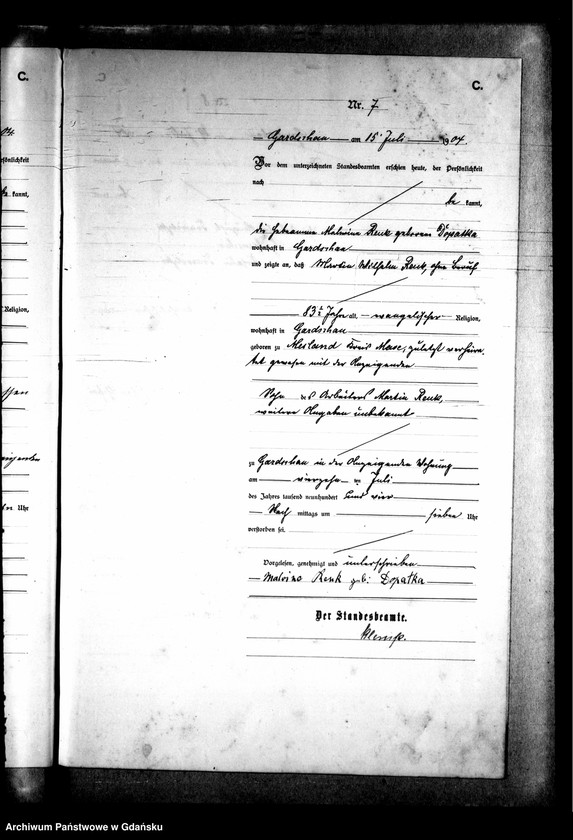 C.
C.
Nr. 7
Gardschau am 15 Juli 1904.
Vor dem unterzeichneten Standesbeamten erschien heute, der Persönlichkeit
nach
be kannt,
die Hebeamme Malwine Renk geborene Dopattka
wohnhaft in Gardschau
und zeigte an, daß Martin Wilhelm Renk, ohne Beruf
83½ Jahre alt, evangelischer Religion,
wohnhaft in Gardschau
geboren zu Kreis zuletzt verheira-
tet gewesen mit der Anzeigenden
Sohn des Arbeiters Martin Renk,
weitere Angaben unbekannt
zu Gardschau in der Anzeigenden Wohnung
am vierzehn ten Juli
des Jahres tausend neunhundert und vier
Nach mittags um sieben Uhr
verstorben sei.
Vorgelesen, genehmigt und unterschrieben
Malvine Renk geb: Dopatka
Der Standesbeamte.
Archiwum Państwowe w Gdańsku